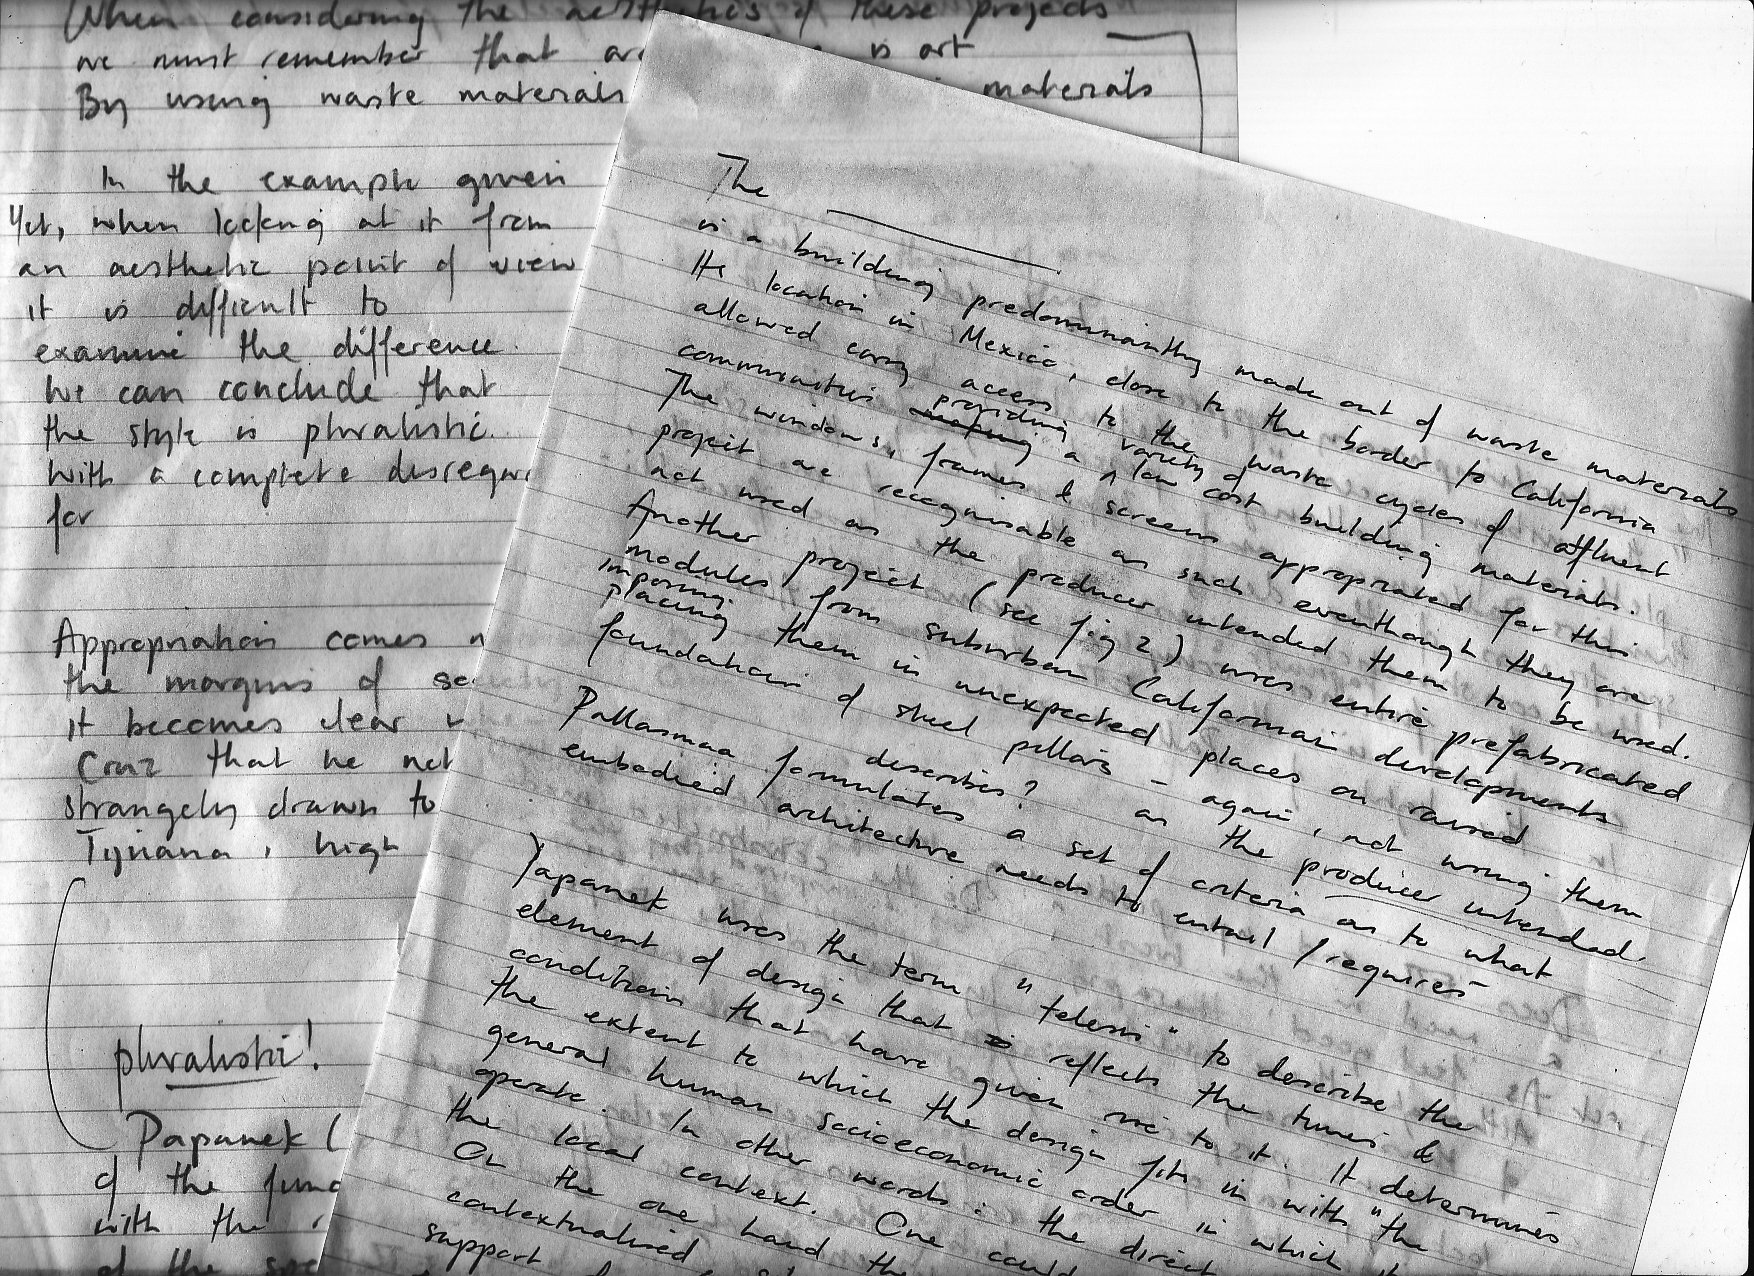 When considering the aesthetics of these projects
we must remember that is art
By using waste materials materials
In the example given
Yet, when looking at it from
an aesthetic point of view
it is difficult to
examine the difference.
We can conclude that
the style is pluralistic.
With a complete
for
Appropriation comes
the margins of
it becomes clear
Cruz that he not
strangely drawn to
Tijuana, high
pluralistic!
Papanek (
of the
with the
of the
The
is a building predominantly made out of waste materials
Its location in Mexico, close to the border to California
allowed easy access to the waste cycles of affluent
communities providing a variety of low cost building materials.
The windows, frames & screens appropriated for this
project are recognisable as such eventhough they are
not used as the producer intended them to be used.
Another project (see fig 2) uses entire prefabricated
modules from suburban Californian developments
imposing
placing them in unexpected places on raised
foundation of steel pillars – again, not using them
as the producer intended.
describes?
Pallasmaa formulates a set of criteria as to what
embodied architecture needs to entail / requires
Papanek uses the term "telesis" to describe the
element of design that reflects the times &
conditions that have given rise to it. It determines
the extent to which the design fits in with "the
general human socioeconomic order in which it
operate. In other words: the direct
the local context. One could
On the one hand the
contextualised
support